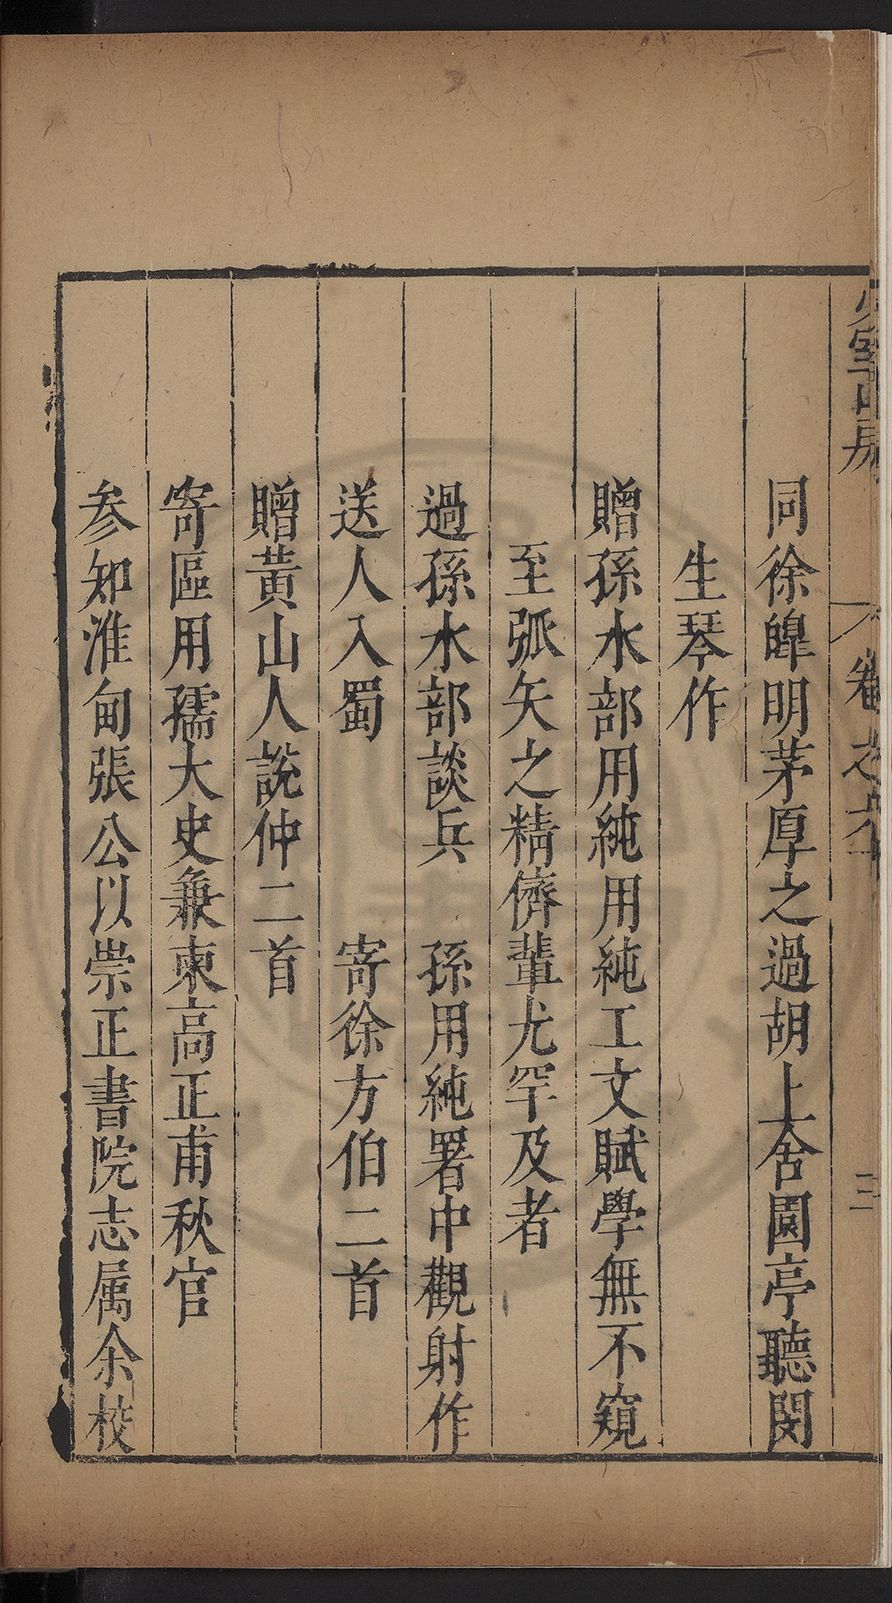 卷之六
三
同徐皥明茅厚之過胡上舍園亭聽閔
生琴作
贈孫水部用純用純工文賦學無不窺
至弧矢之精儕輩尤罕及者
過孫水部談兵 孫用純署中觀射作
送人入蜀 寄徐方伯二首
贈黃山人說仲二首
寄區用孺大史兼柬高正甫秋官
参知淮甸張公以崇正書院志属余校